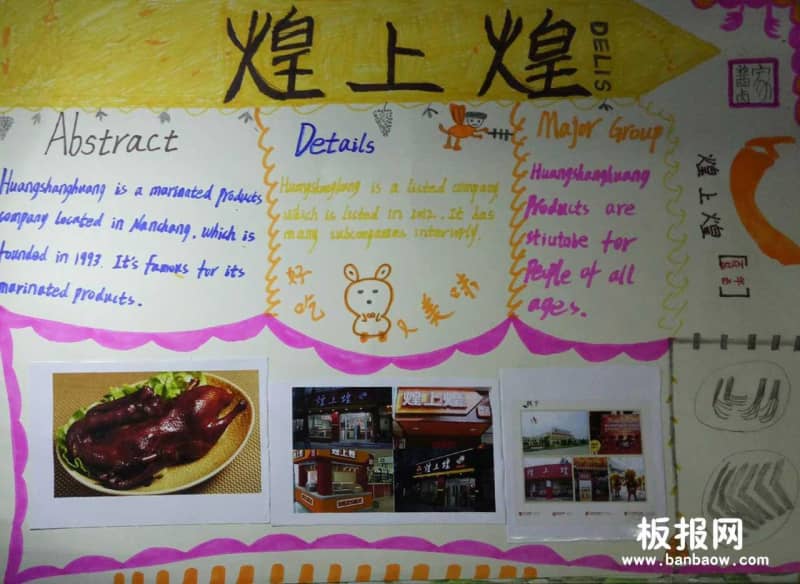 煌上煌
DELIS
Abstract
Huangshanghuang is a marinated products
company located in Nanchang, which is
founded in 1993. It's famous for its
marinated products.
Details
Huangshanghuang is a listed company
which is listed in 2012. It has
many subcompanies
好吃
美味
Major Group
Huangshanghuang
Products are
stiutabe for
People of all
ages.
煌上煌
煌上煌
煌上煌
煌上煌
煌上煌
板报网
www.banbaow.com